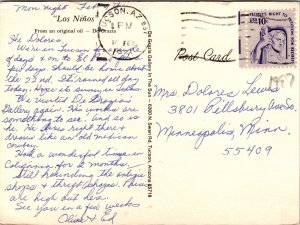 Mon night Feb
"Los Niños"
From an original oil — DeGrazia
Hi Dolores
We're in Tucson for a couple
of days
days. Should be home about
the 22nd. It rained all day
today. Hope it's sunny in
We visited De Grazia's
Gallery again. His works are
something to see! And so is
he. He lives right there &
dresses like an old Mexican
cowboy.
Had a wonderful time in
California for 2 months.
Still
shops & thrift shops. Prices
are high out here.
See you in a few weeks
Clive & Ed
DeGrazia Gallery In The Sun • 6300 N. Swan Rd. Tucson, Arizona 85718
TUCSON, AZ
PM
FE
10c
Post Card
Mrs Dolores Lewis
3801 Pillsbury Ave So.
Minneapolis, Minn.
55409